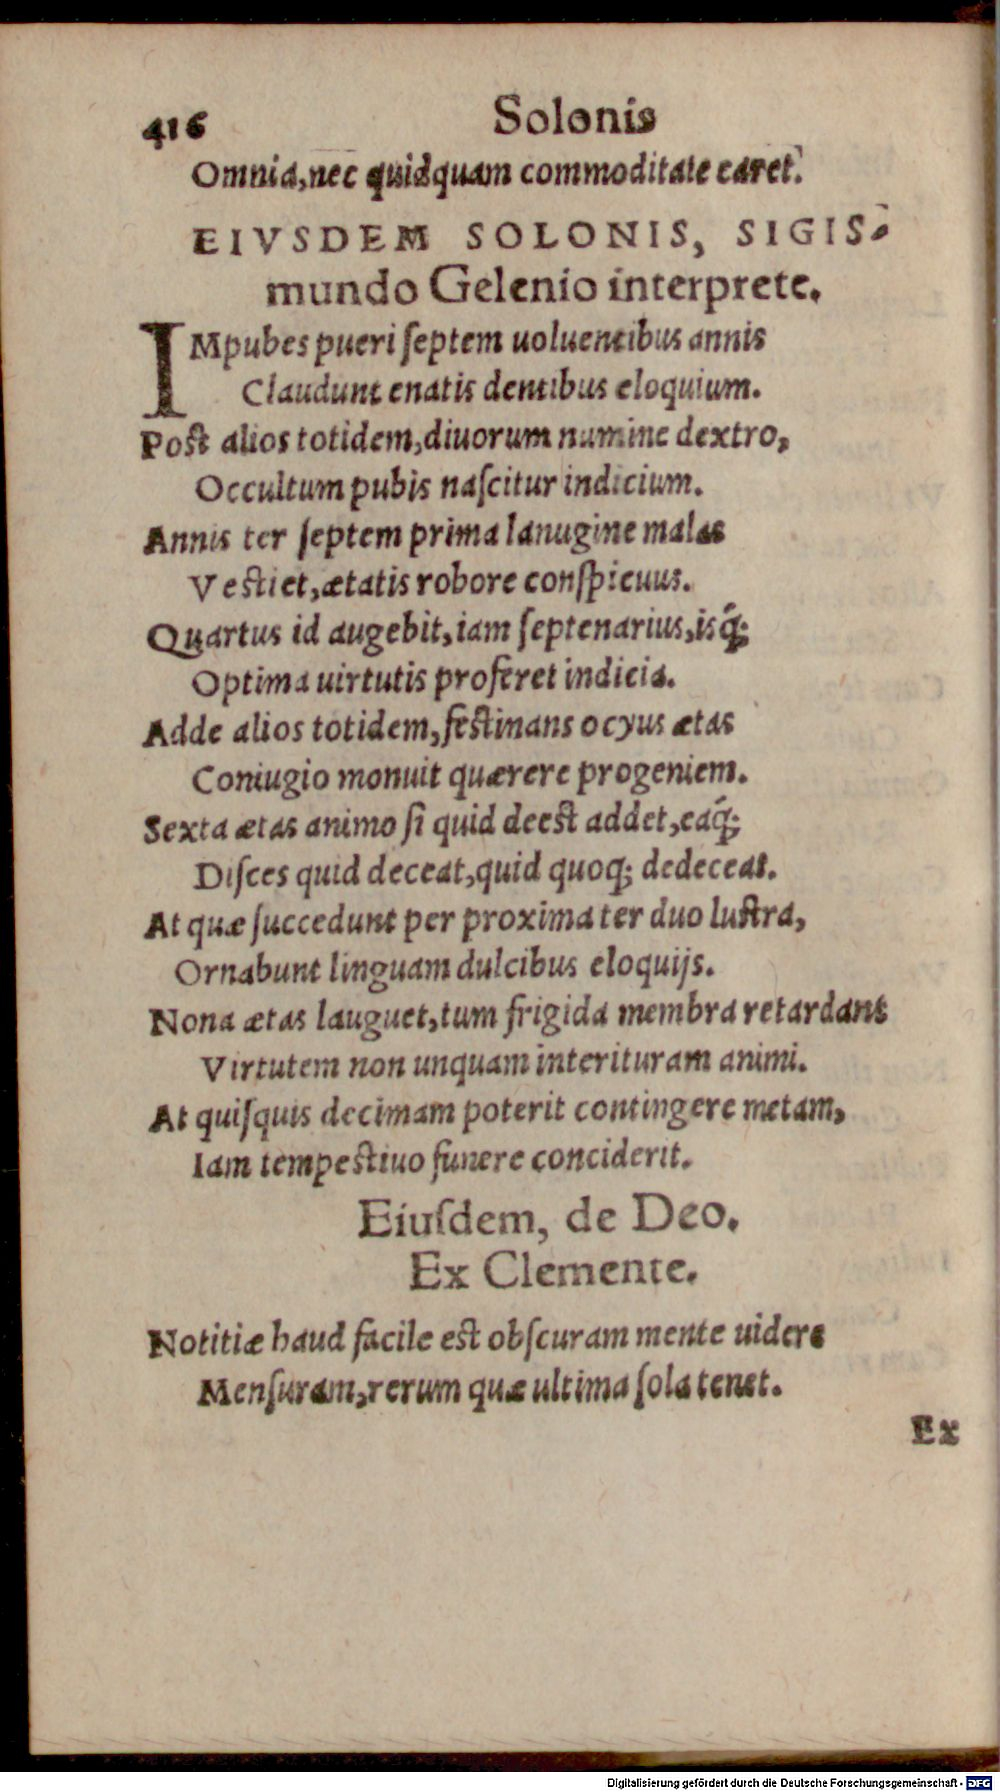 416 Solonis
Omnia, nec quidquam commoditate caret.
EIVSDEM SOLONIS, SIGIS-
mundo Gelenio interprete.
IMpubes pueri ſeptem uoluentibus annis
Claudunt enatis dentibus eloquium.
Poſt alios totidem, diuorum numine dextro,
Occultum pubis naſcitur indicium.
Annis ter ſeptem prima lanugine malas
Veſtiet, ætatis robore conſpicuus.
Quartus id augebit, iam ſeptenarius, isq́;
Optima uirtutis proferet indicia.
Adde alios totidem, feſtinans ocyus ætas
Coniugio monuit quærere progeniem.
Sexta ætas animo ſi quid deeſt addet, eaq́;
Diſces quid deceat, quid quoq; dedeceat.
At quæ ſuccedunt per proxima ter duo luſtra,
Ornabunt linguam dulcibus eloquijs.
Nona ætas lauguet, tum frigida membra retardant
Virtutem non unquam interituram animi.
At quiſquis decimam poterit contingere metam,
Iam tempeſtiuo funere conciderit.
Eiuſdem, de Deo.
Ex Clemente.
Notitiæ haud facile eſt obſcuram mente uidere
Menſuram, rerum quæ ultima ſola tenet.
Ex
Digitalisierung gefördert durch die Deutsche Forschungsgemeinschaft - DFG